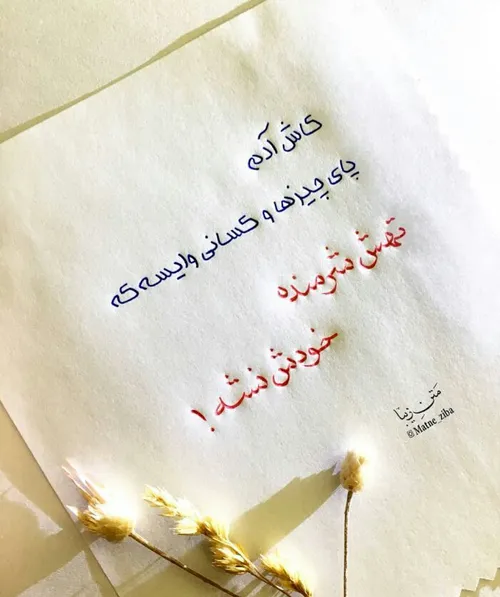 کاش آدم
پای چیزها و کسانی وایسه که
تهش شرمنده
خودش نشه!
متن زیبا
@Matne_ziba